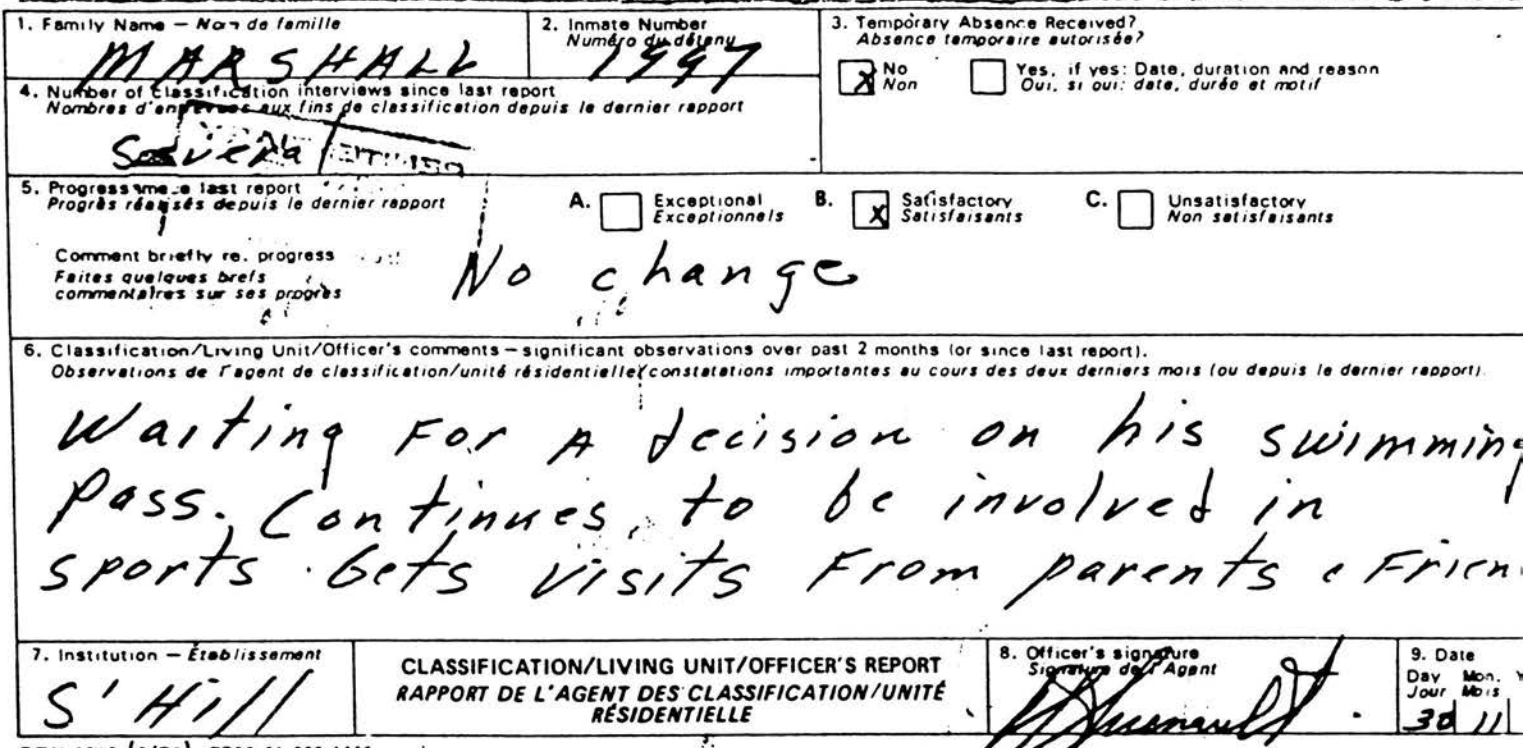 1. Family Name — Nom de famille
MARSHALL
2. Inmate Number
Numéro du détenu
1997
3. Temporary Absence Received?
Absence temporaire autorisée?
X No
Non
Yes, if yes: Date, duration and reason
Oui, si oui: date, durée et motif
4. Number of Classification interviews since last report
Nombres d'entrevues aux fins de classification depuis le dernier rapport
Several
5. Progress since last report
Progrès réalisés depuis le dernier rapport
A. Exceptional
Exceptionnels
B. X Satisfactory
Satisfaisants
C. Unsatisfactory
Non satisfaisants
Comment briefly re. progress
Faites quelques brefs
commentaires sur ses progrès
No change
6. Classification/Living Unit/Officer's comments — significant observations over past 2 months (or since last report).
Observations de l'agent de classification/unité résidentielle/constatations importantes au cours des deux derniers mois (ou depuis le dernier rapport).
Waiting For A decision on his swimming
Pass. Continues to be involved in
sports. Gets visits From parents & Frien
7. Institution — Établissement
S' Hill
CLASSIFICATION/LIVING UNIT/OFFICER'S REPORT
RAPPORT DE L'AGENT DES CLASSIFICATION/UNITÉ
RÉSIDENTIELLE
8. Officer's signature
Signature de l'Agent
9. Date
Day Mon. Y
Jour Mois
30 11